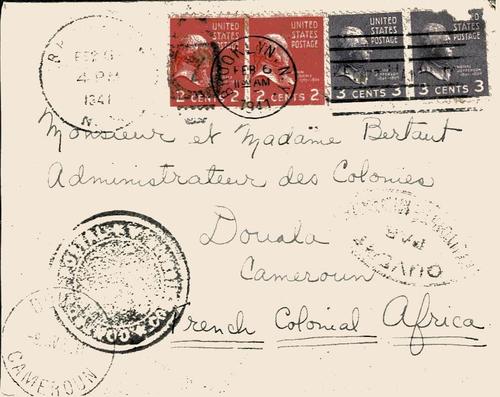 FEB 6
4 PM
1941
N.
UNITED STATES POSTAGE
2 CENTS 2
UNITED STATES POSTAGE
2 CENTS 2
BROOKLYN, N.Y.
FEB 6
AM
1941
UNITED STATES POSTAGE
3 CENTS 3
UNITED STATES POSTAGE
3 CENTS 3
Monsieur et Madame Bertaut
Administrateur des Colonies
Douala
Cameroun
French Colonial Africa
OUVERT
PAR
CAMEROUN